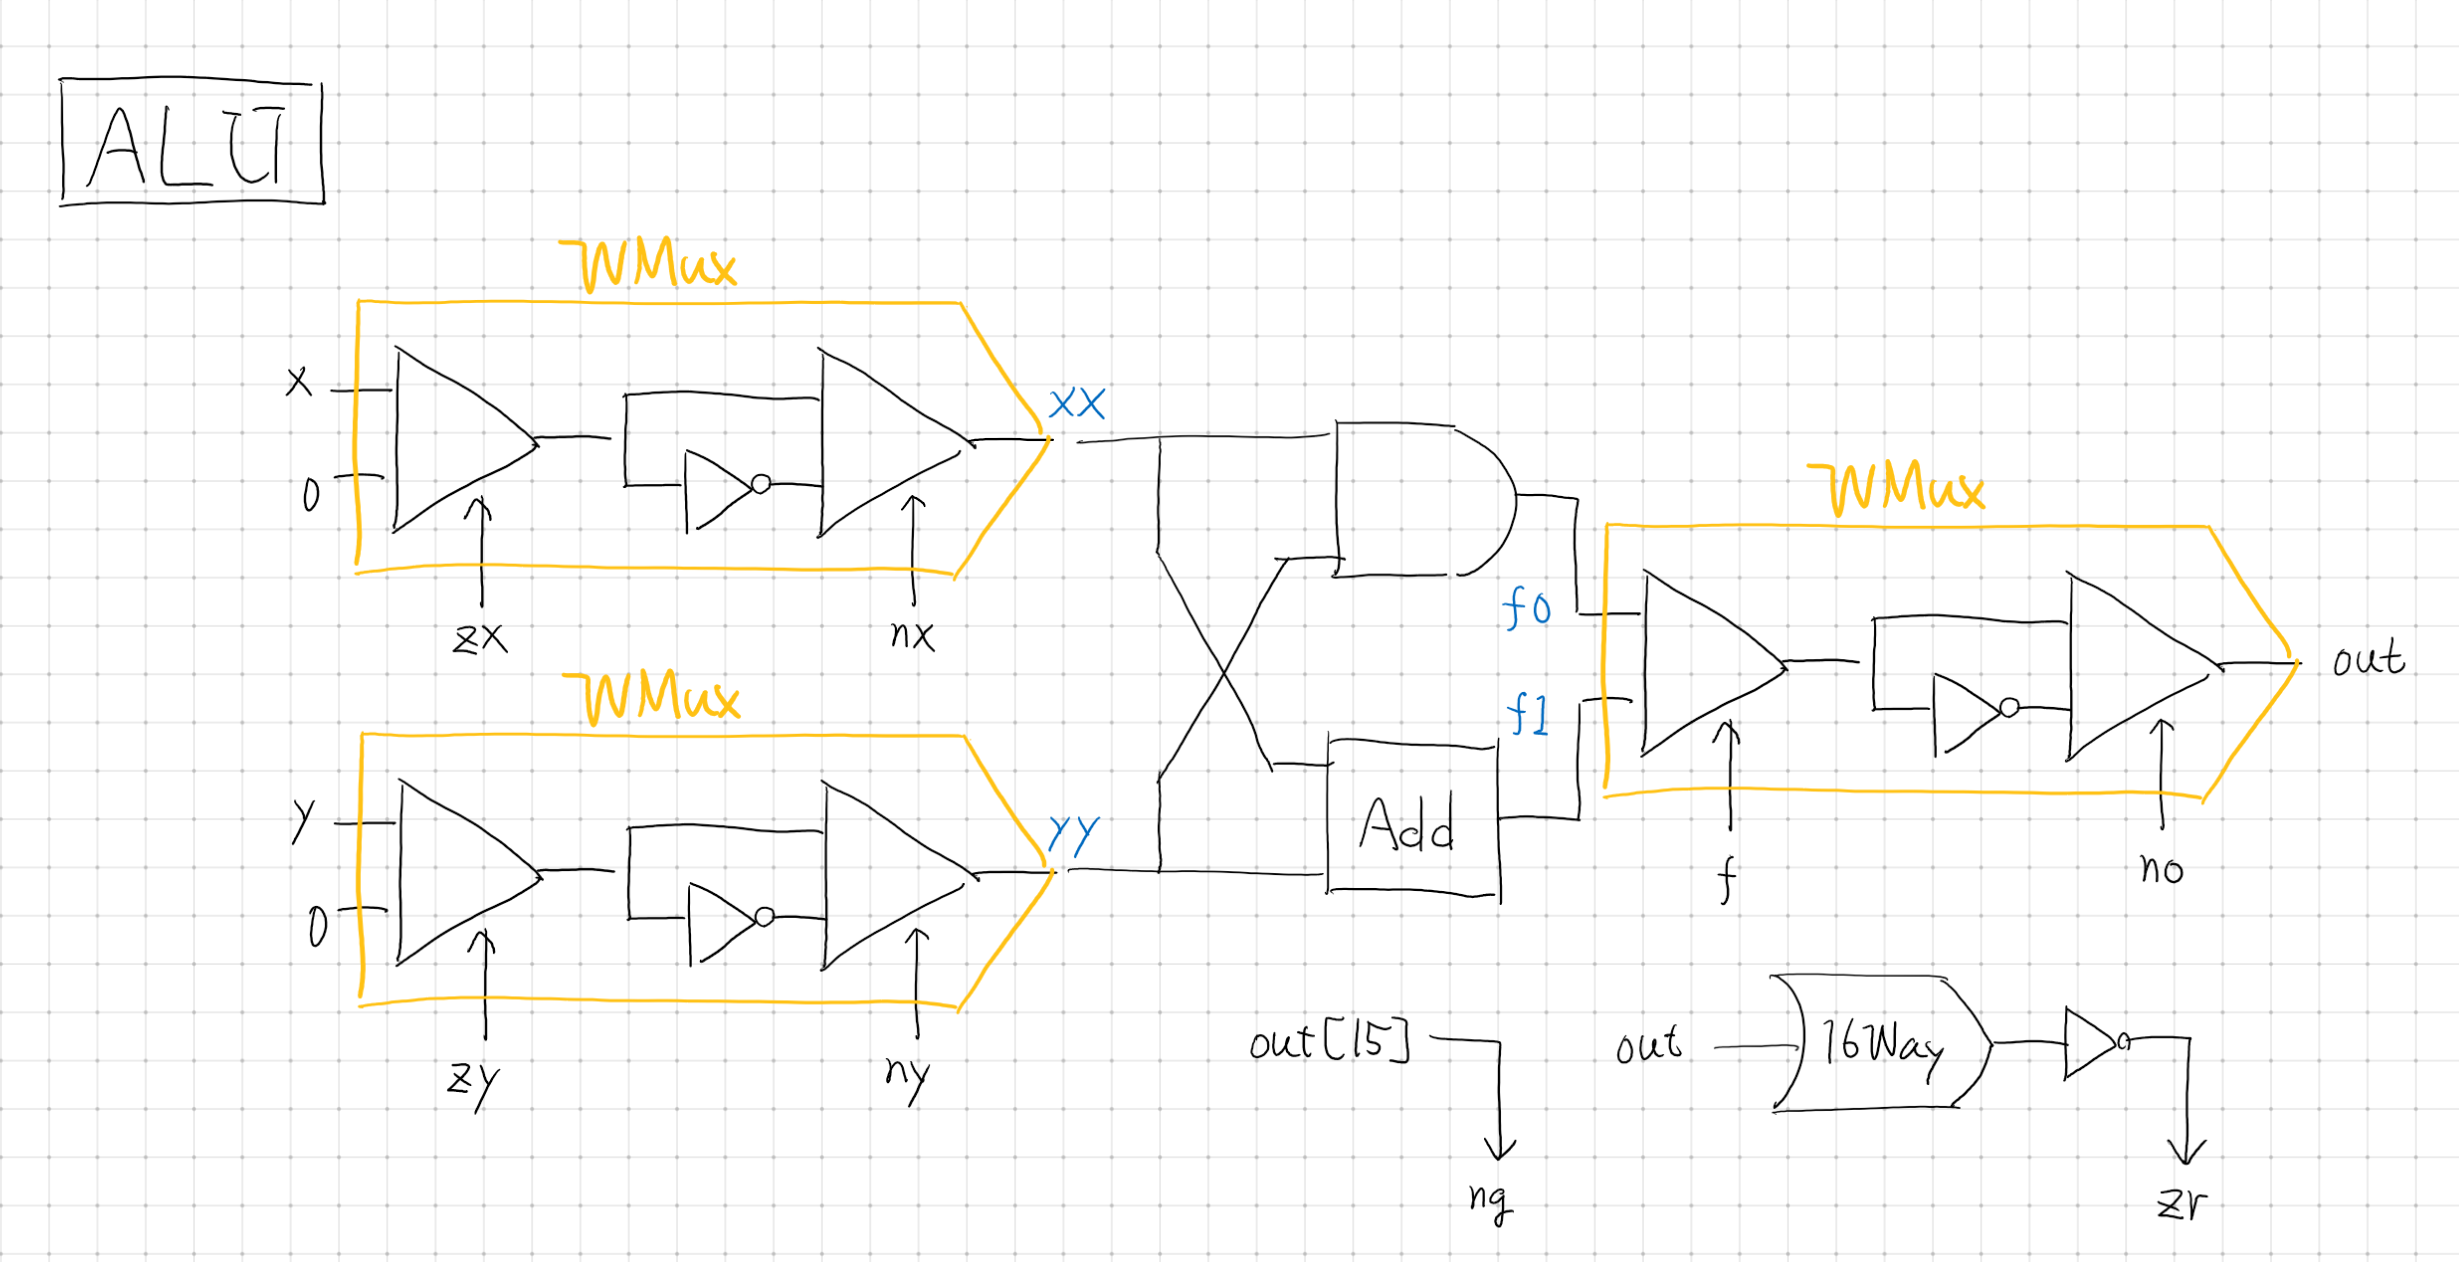 ALU
WMux
x
0
xx
zx
nx
WMux
y
0
yy
zy
ny
f0
f1
Add
WMux
out
f
no
out[15]
ng
out
16Way
zr